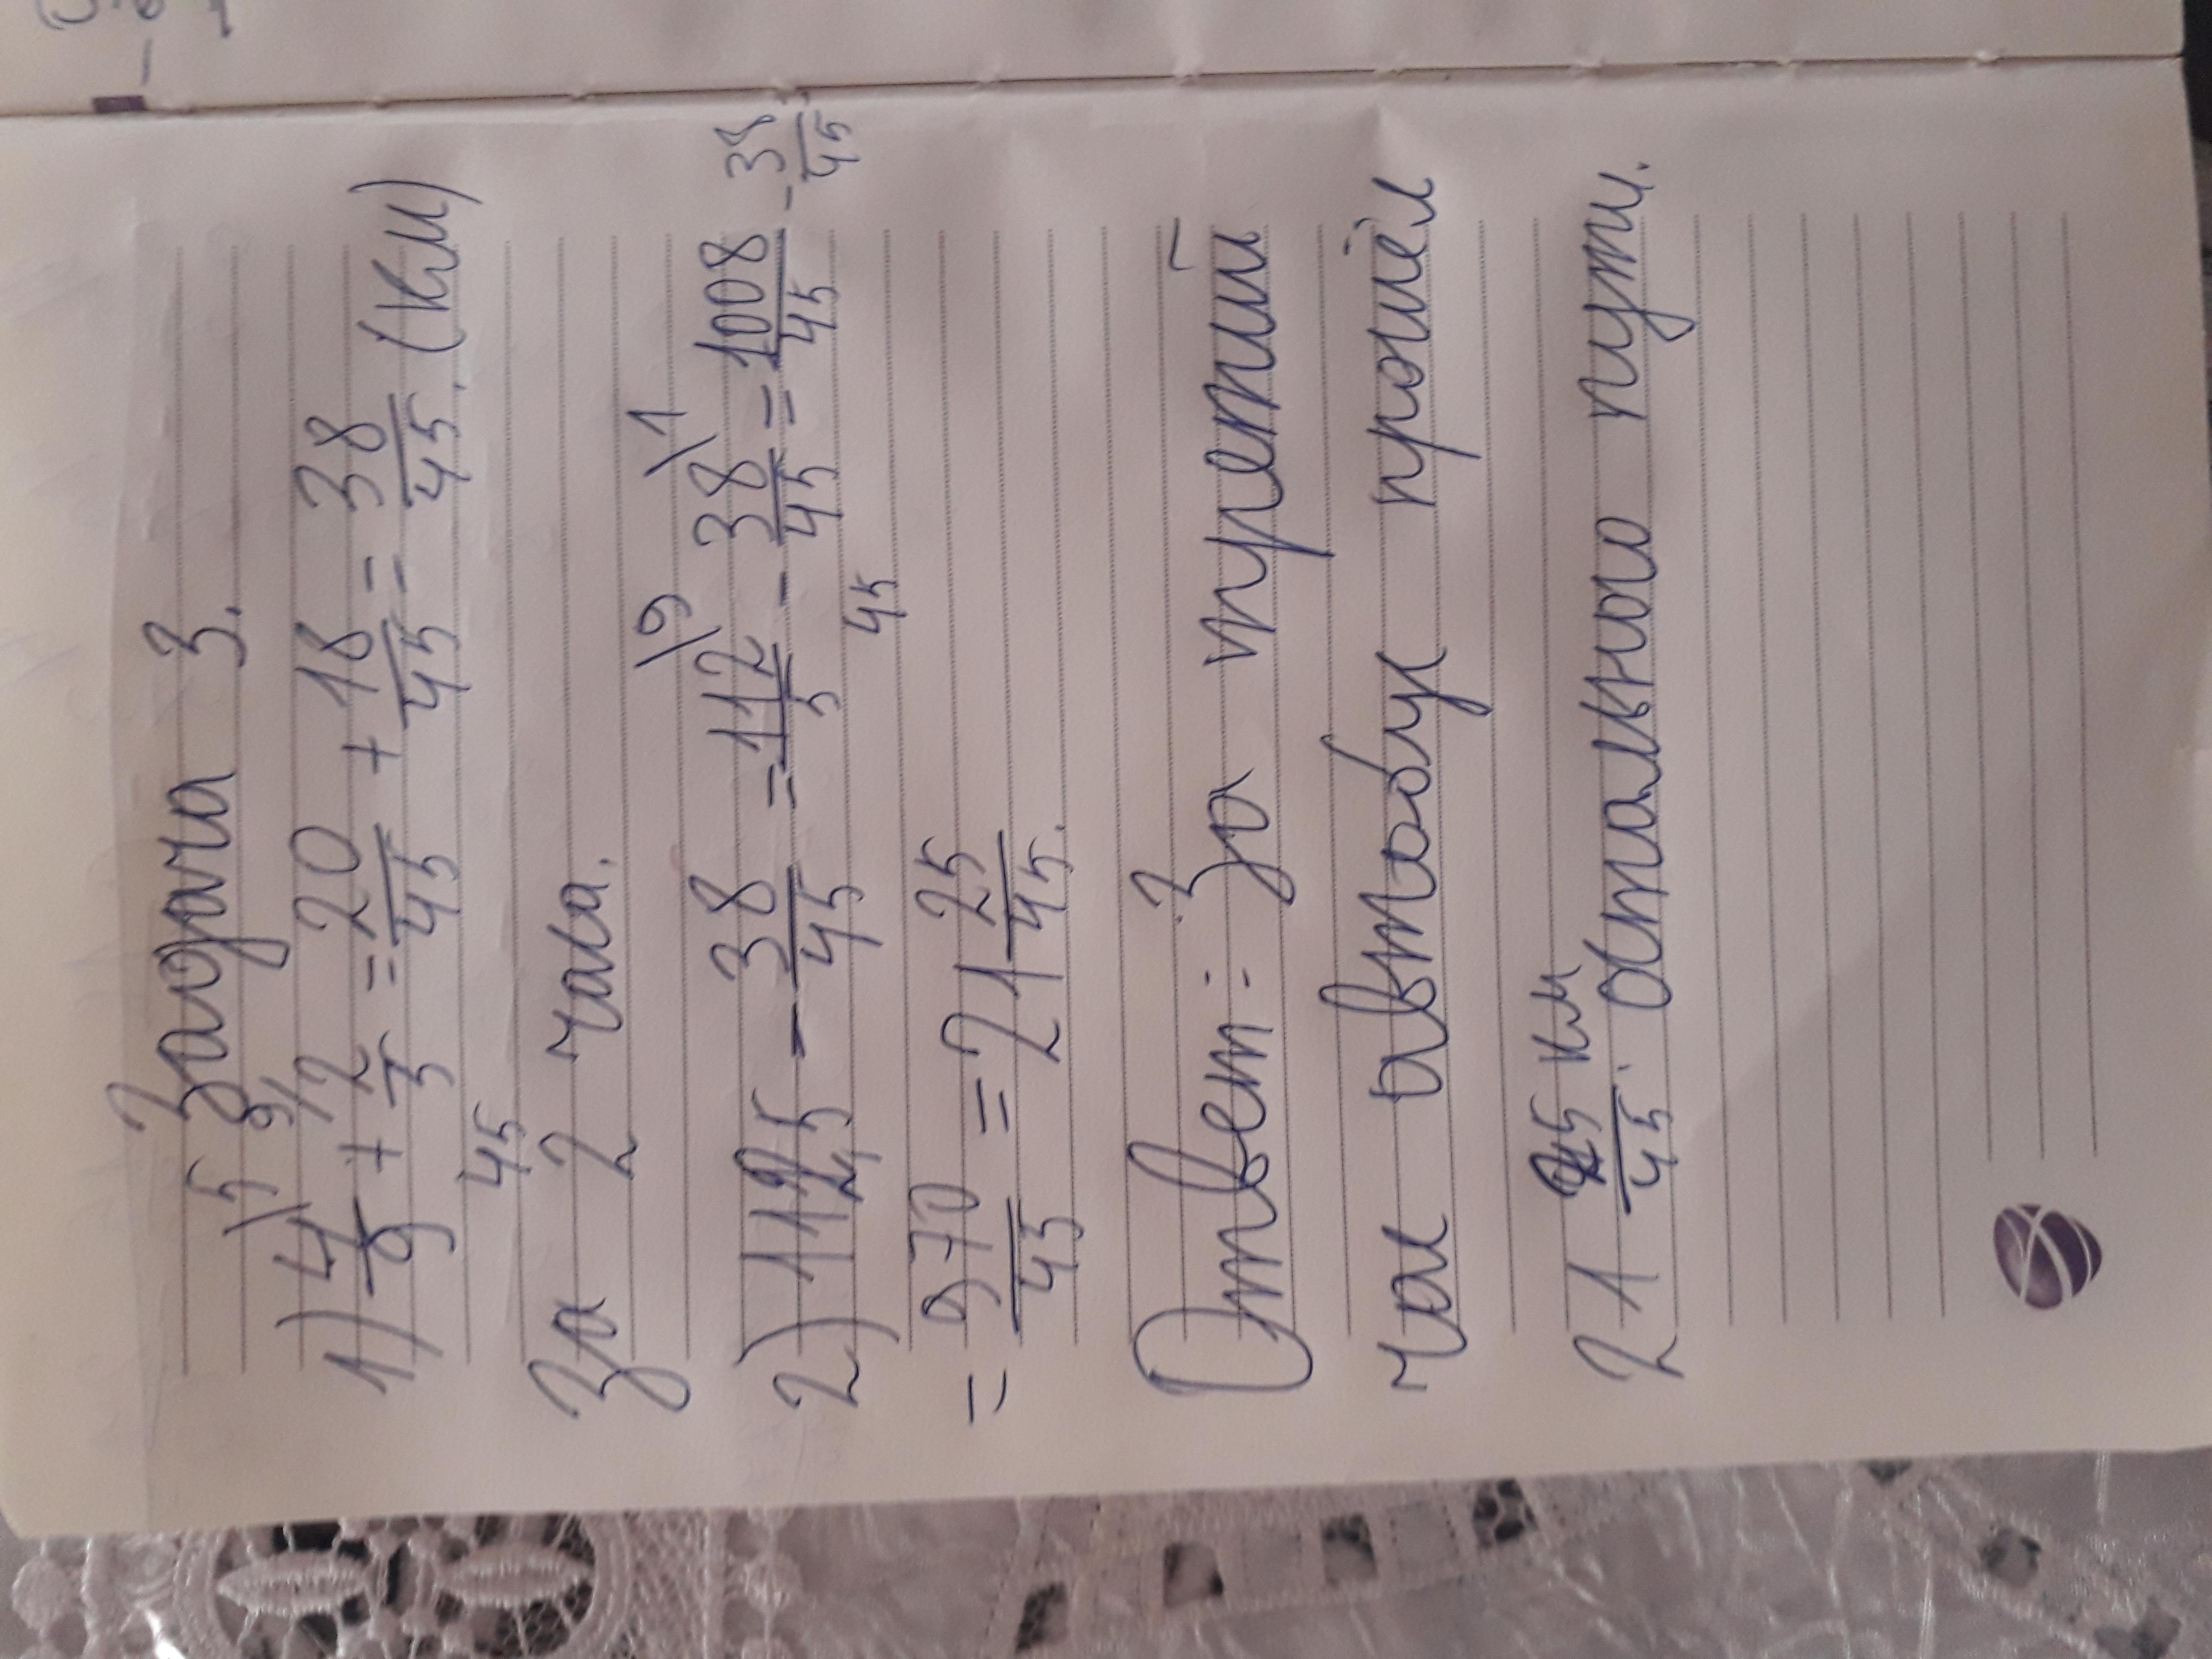 Задача 3.
1) 4/9 \5 + 2/5 \9 = 20/45 + 18/45 = 38/45. (км)
45
За 2 часа.
2) 112,5 - 38/45 = 112/5 \9 - 38/45 \1 = 1008/45 - 38/45
45
= 970/45 = 21 25/45.
Ответ: за третий
час автобус прошёл
21 25/45 км остального пути.